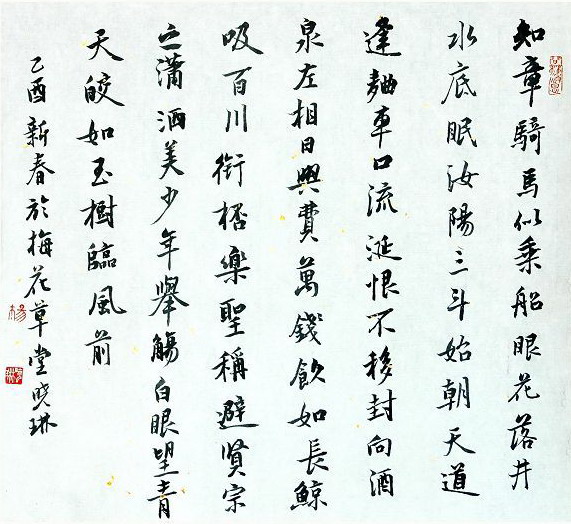 知章騎馬似乘船眼花落井
水底眠汝陽三斗始朝天道
逢麯車口流涎恨不移封向酒
泉左相日興費萬錢飲如長鯨
吸百川銜桮樂聖稱避賢宗
之瀟洒美少年舉觴白眼望青
天皎如玉樹臨風前
乙酉新春於梅花草堂曉琳